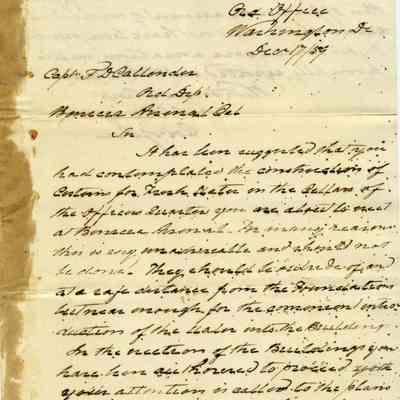 Ord Office
Washington DC
Decr 17/59
Capt. F D Callender
Ord Dep.
Benecia Arsenal Cal
Sir
It has been suggested that you
had contemplated the construction of
Cistern for Fresh Water in the Cellars of
the Officers Quarters you are about to erect
at Benecia Arsenal. For many reasons
this is very unadvisable and should not
be done. They should be outside of and
at a safe distance from the Foundations
but near enough for the convenient intro-
duction of the water into the Building
In the erection of the Buildings you
have been authorized to proceed with
your attention is called to the plans